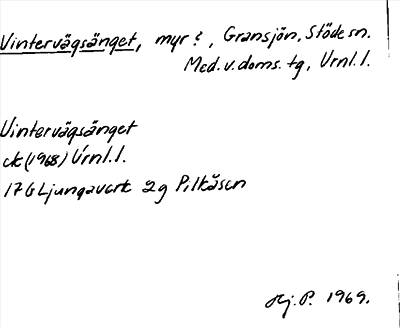 Vintervägsänget, myr?, Gransjön, Stöde sn.
Med. v. doms. tg, Vrnl. l.
Vintervägsänget
ek (1968) Vrnl. l.
17G Ljungaverk 2g Pilkåsen
Hj. P. 1969.